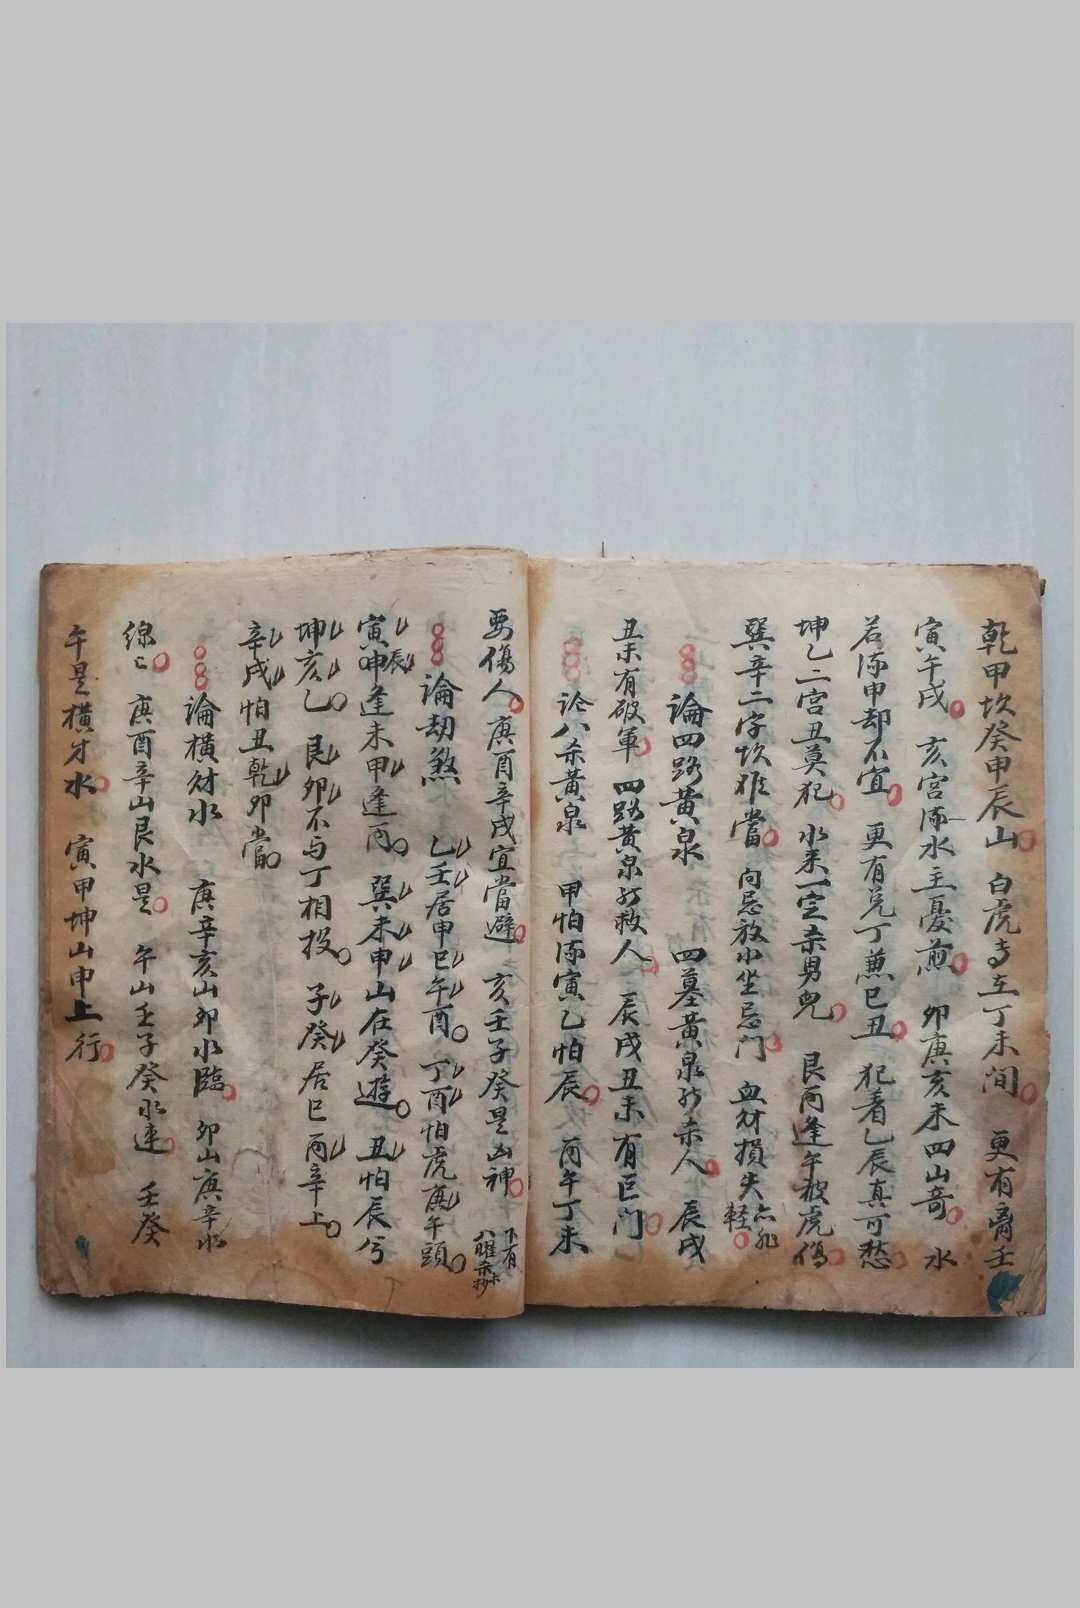 乾甲坎癸申辰山 白虎 在丁未间 更有离壬
寅午戌 亥宫 水主憂煎 卯庚亥未四山奇 水
若 申却不宜 更有兑丁兼巳丑 犯着乙辰真可愁
坤乙二宫丑莫犯 水来一定杀男兒 艮丙逢午被虎傷
巽辛二字坎难當 向忌放水坐忌门 血财損失 非軽
論四路黄泉 四墓黄泉 杀人 辰戌
丑未有破軍 四路黄泉 救人 辰戌丑未有巨门
论八杀黄泉 甲怕 寅乙怕辰 丙午丁未
要傷人 庚酉辛戌宜當避 亥壬子癸是凶神 下有八曜杀未抄
論劫煞 乙壬居申巳午酉 丁酉怕虎庚午頭
寅辰申逢未甲逢丙 巽未申山在癸遊 丑怕辰兮
坤亥乙 艮卯不与丁相投 子癸居巳丙辛上
辛戌怕丑乾卯當
論横财水 庚辛亥山卯水臨 卯山庚辛水
線 庚酉辛山艮水是 午山壬子癸水連 壬癸
午是横才水 寅甲坤山申上行